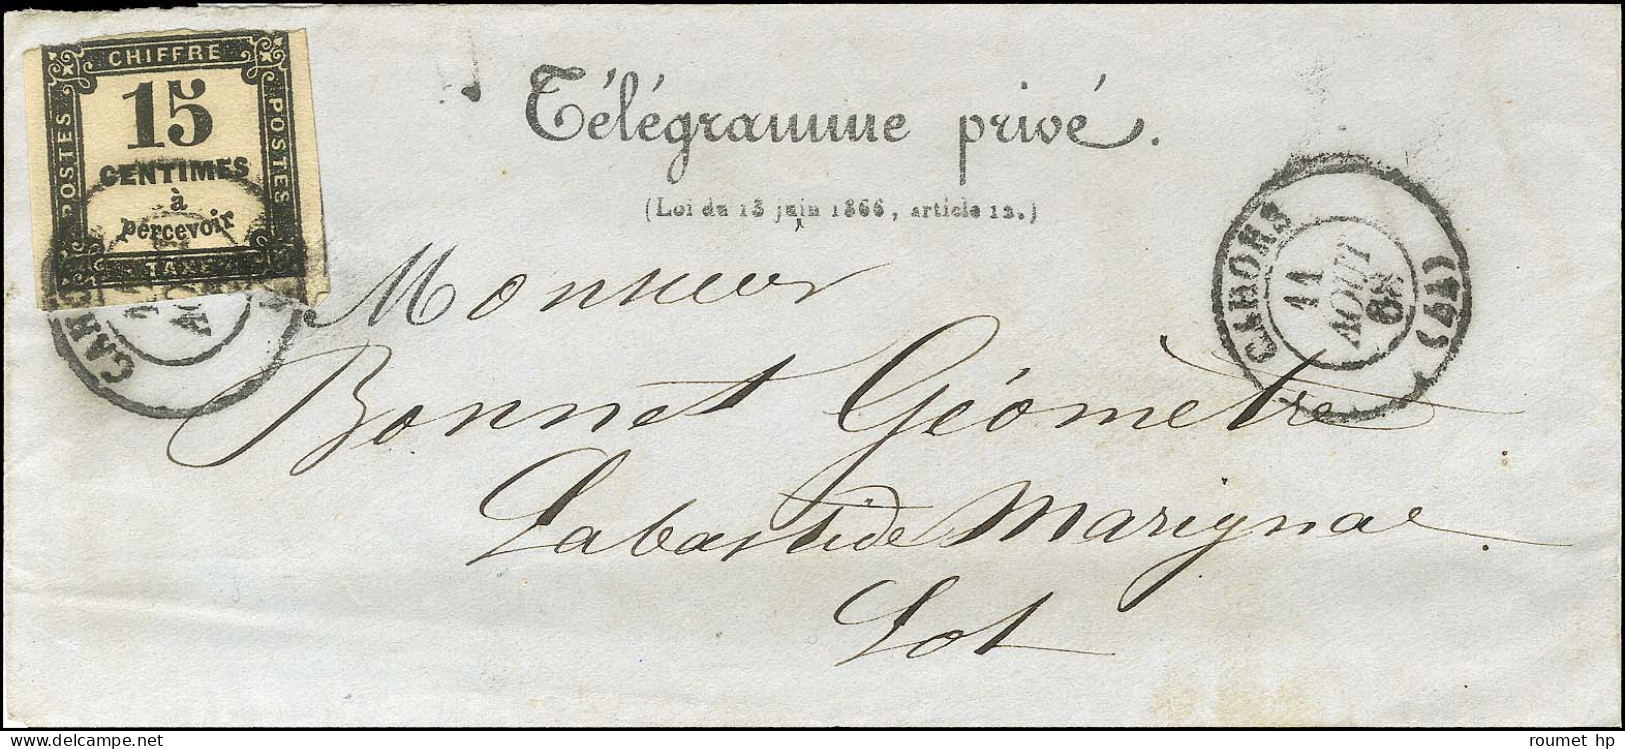 CHIFFRE
POSTES
15
CENTIMES
à
percevoir
POSTES
TAXE
Télégramme privé.
(Loi du 13 juin 1866, article 12.)
CAHORS
11
AOUT
68
(44)
Monsieur
Bonnet Géomètre
Labastide Marignac
Lot
roumet hp